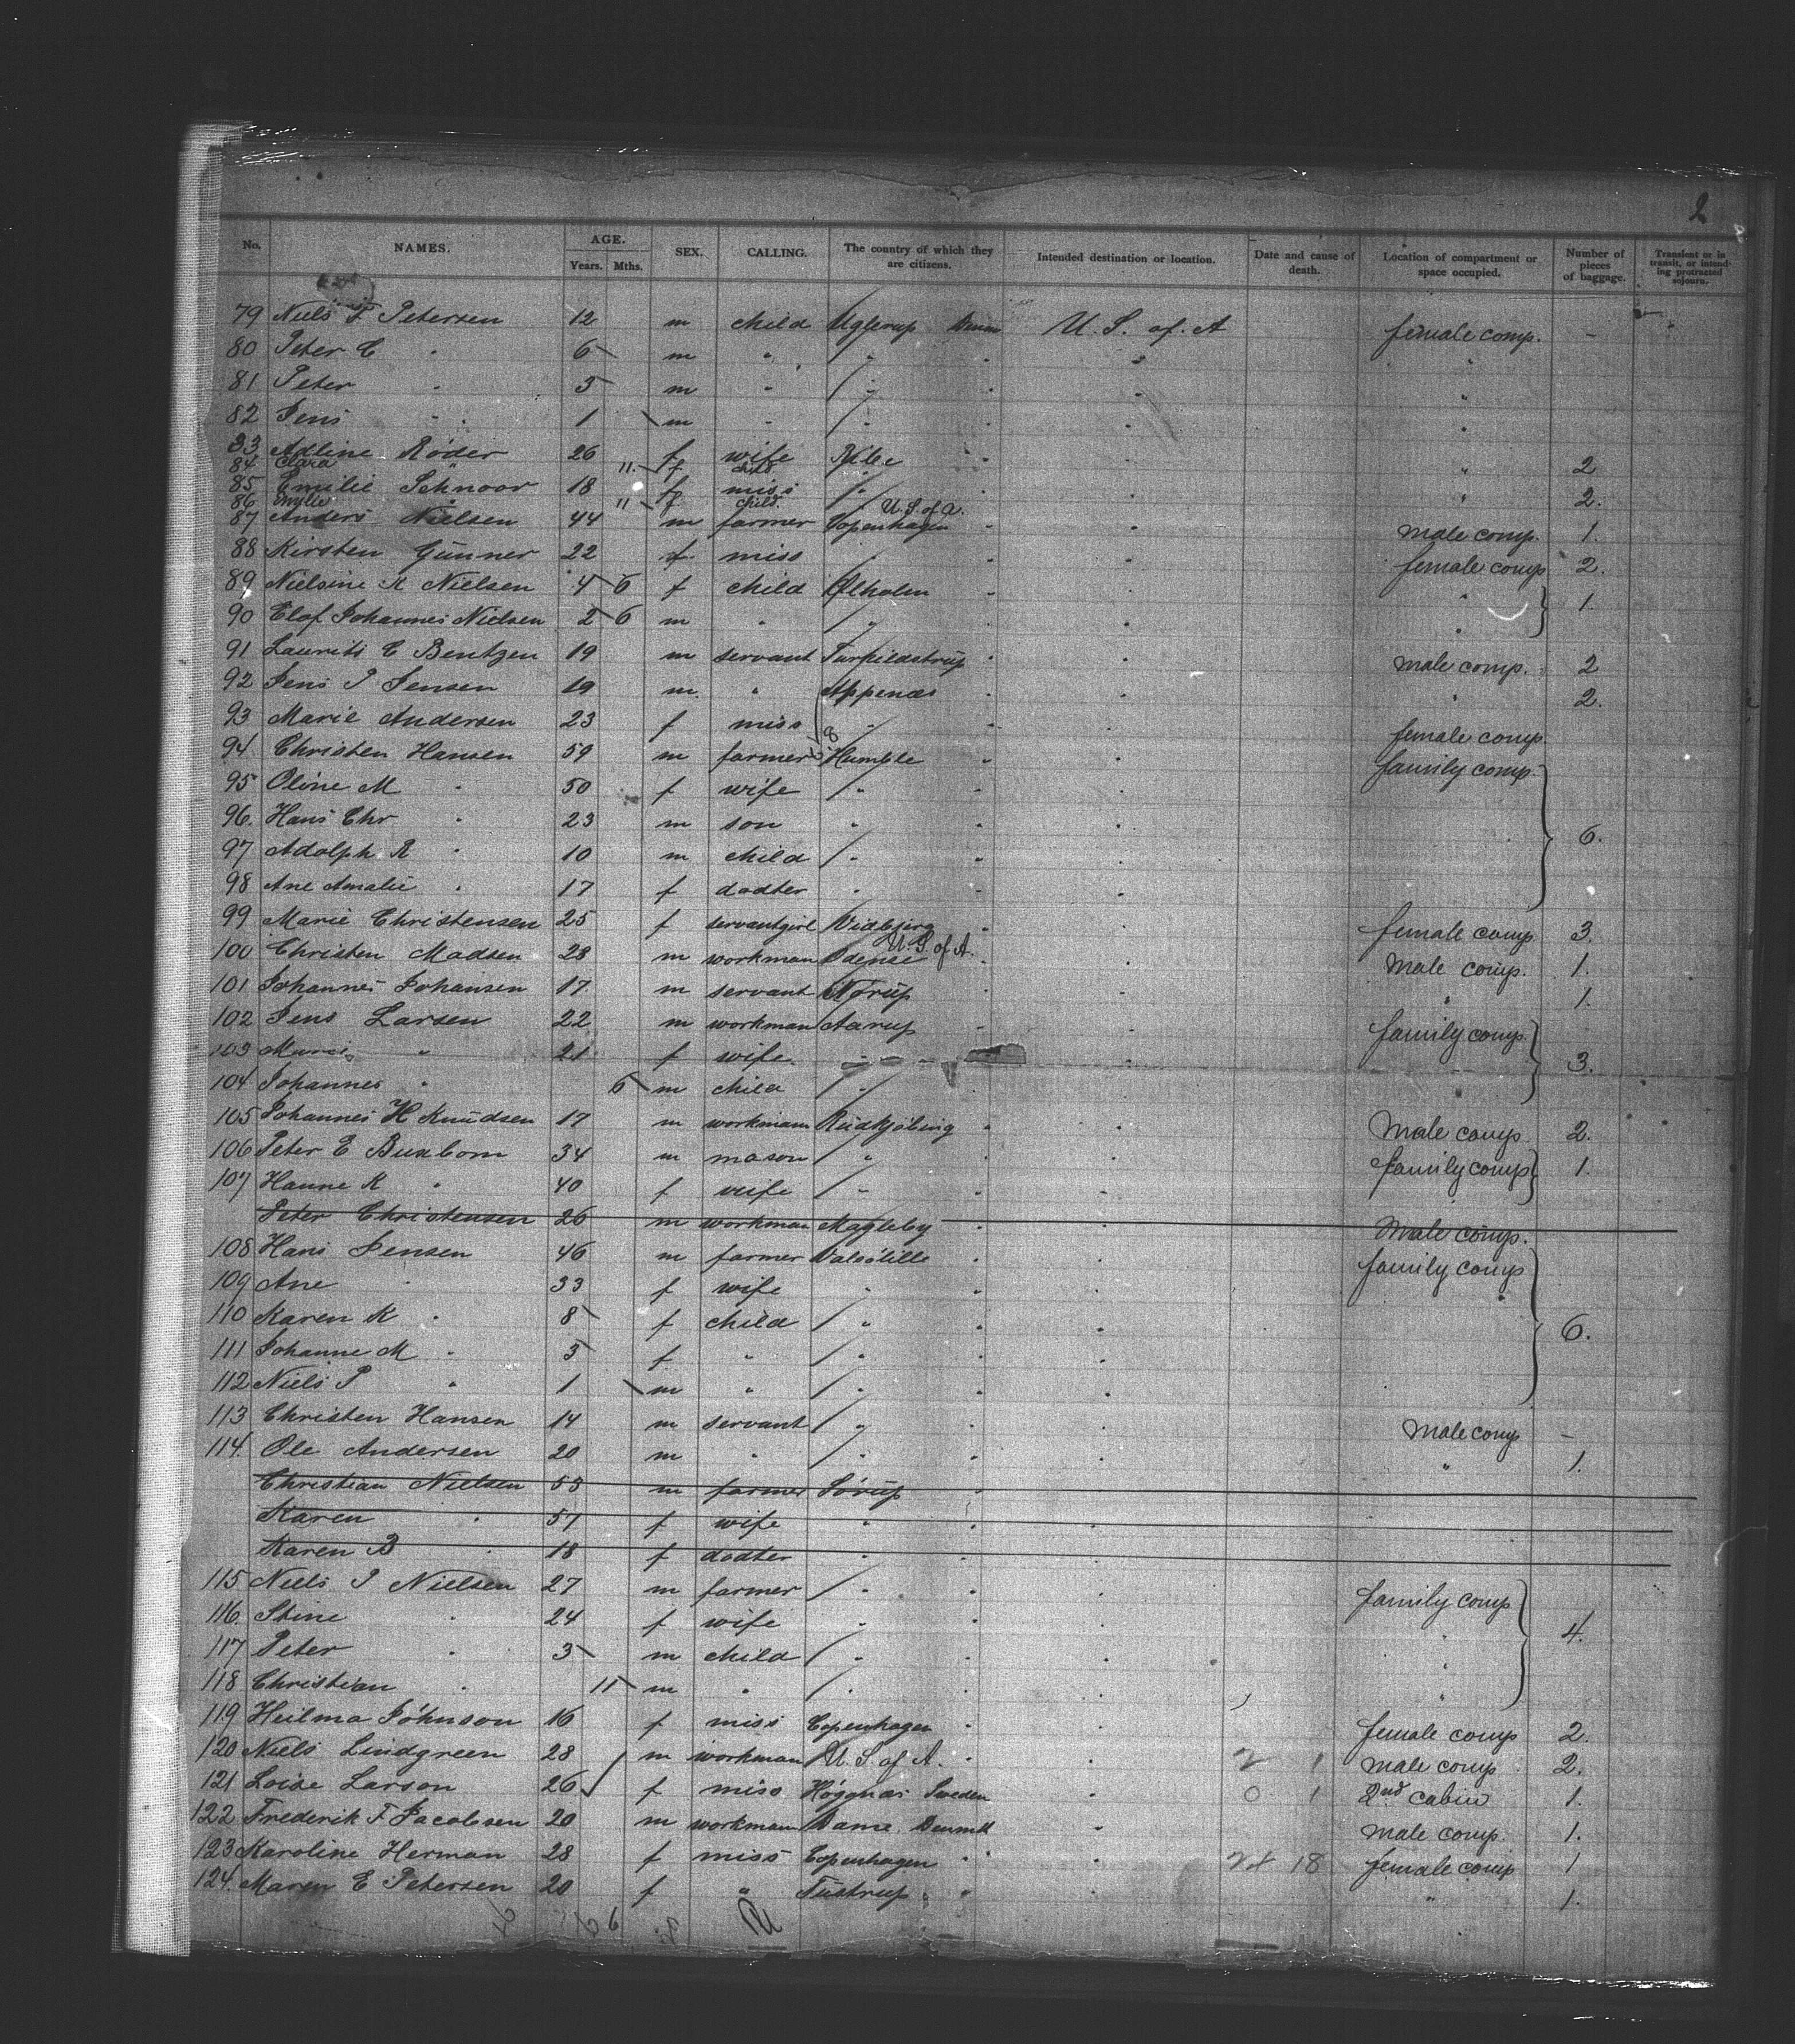 2
No. NAMES. AGE. Years. Mths. SEX. CALLING. The country of which they are citizens. Intended destination or location. Date and cause of death. Location of compartment or space occupied. Number of pieces of baggage. Transient or in transit, or intending protracted sojourn.
79 Niels F Petersen 12 m child Uglerup Denm U. S. of. A female comp. -
80 Peter C " 6 m " " " "
81 Peter " 5 m " " " " "
82 Jens " 1 m " " " " "
83 Adline Röder 26 f wife Ribe " " " 2
84 Clara " 11 f child
85 Emilie Schnoor 18 f miss " " " 2.
86 Emylie " 11 f child U. S. of A.
87 Anders Nielsen 44 m farmer Copenhagen " " male comp. 1.
88 Kirsten Günner 22 f miss " " " female comp 2.
89 Nielsine K Nielsen 4 6 f child " " " 1.
90 Elof Johannes Nielsen 2 6 m " " " "
91 Laurits C Bentzen 19 m servant Turpildstrup " " male comp. 2
92 Jens P Jensen 19 m. " Appenæs " " " 2.
93 Marie Andersen 23 f miss " " " female comp
94 Christen Hansen 59 m farmer Humble " " family comp.
95 Oline M " 50 f wife " " "
96. Hans Chr " 23 m son " " " 6.
97 Adolph R " 10 m child " " "
98 Ane Amalie " 17 f dodter " " "
99 Marie Christensen 25 f servantgirl Vidbjerg " " female comp 3.
100 Christen Madsen 28 m workman Odense U. S. of A. " " Male comp. 1.
101 Johannes Johansen 17 m servant Nörup " " " 1.
102 Jens Larsen 22 m workman Aarup " " family comp.
103 Marie " 21 f wife. " " " 3.
104 Johannes " 6 m child " " "
105 Johannes H Knudsen 17 m workman Rudkjöbing " " Male comp 2.
106 Peter E Buxbom 34 m mason " " " family comp 1.
107 Hanne K " 40 f wife " " " "
Peter Christensen 26 m workman Magleby " " Male comp.
108 Hans Jensen 46 m farmer Valsölille " " family comp
109 Ane " 33 f wife " " " "
110 Karen K " 8 f child " " " 6.
111 Johanne M " 5 f " " " "
112 Niels P " 1 m " " " "
113 Christen Hansen 14 m servant " " " Male comp -
114. Ole Andersen 20 m " " " " " 1.
Christian Nielsen 53 m farmer Sörup "
Karen " 57 f wife " " "
Karen B " 18 f dodter " " "
115 Niels P Nielsen 27 m farmer " " " family comp
116. Stine " 24 f wife " " " " 4.
117 Peter " 3 m child " " " "
118 Christian " 11 m " " " "
119 Heilma Johnson 16 f miss Copenhagen " " female comp 2.
120 Niels Lindgreen 28 m workman U. S. of A. " " 2 1 male comp 2.
121 Loise Larson 26 f miss Höganäs Sweden " 0 1 2nd cabin 1.
122 Frederik F Jacobsen 20 m workman Dame Denmk " male comp. 1.
123 Karoline Herman 28 f miss Copenhagen " " 24 18 female comp 1
124. Maren E Petersen 20 f " Tustrup " " " " 1.